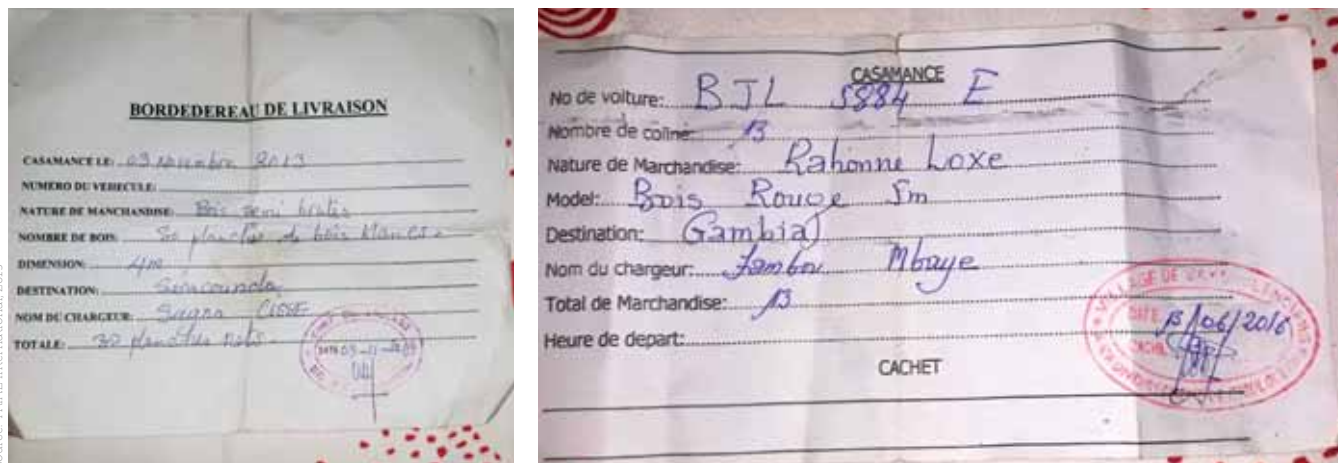 BORDEDEREAU DE LIVRAISON
CASAMANCE LE: 03 novembre 2013
NUMERO DU VEHECULE:
NATURE DE MANCHANDISE: Bois semi brutes
NOMBRE DE BOIS: 30 planches de bois blancs.
DIMENSION: 4m
DESTINATION:
NOM DU CHARGEUR: Sagna CISSE
TOTALE: 30 planches nets.
DATE 03-11-2013
CASAMANCE
No de voiture: BJL 5884 E
Nombre de coline: 13
Nature de Marchandise: Rahonne Loxe
Model: Bois Rouge 5m
Destination: Gambia
Nom du chargeur: Mbaye
Total de Marchandise: 13
Heure de depart:
VILLAGE DE
DATE 13/06/2016
CACHET